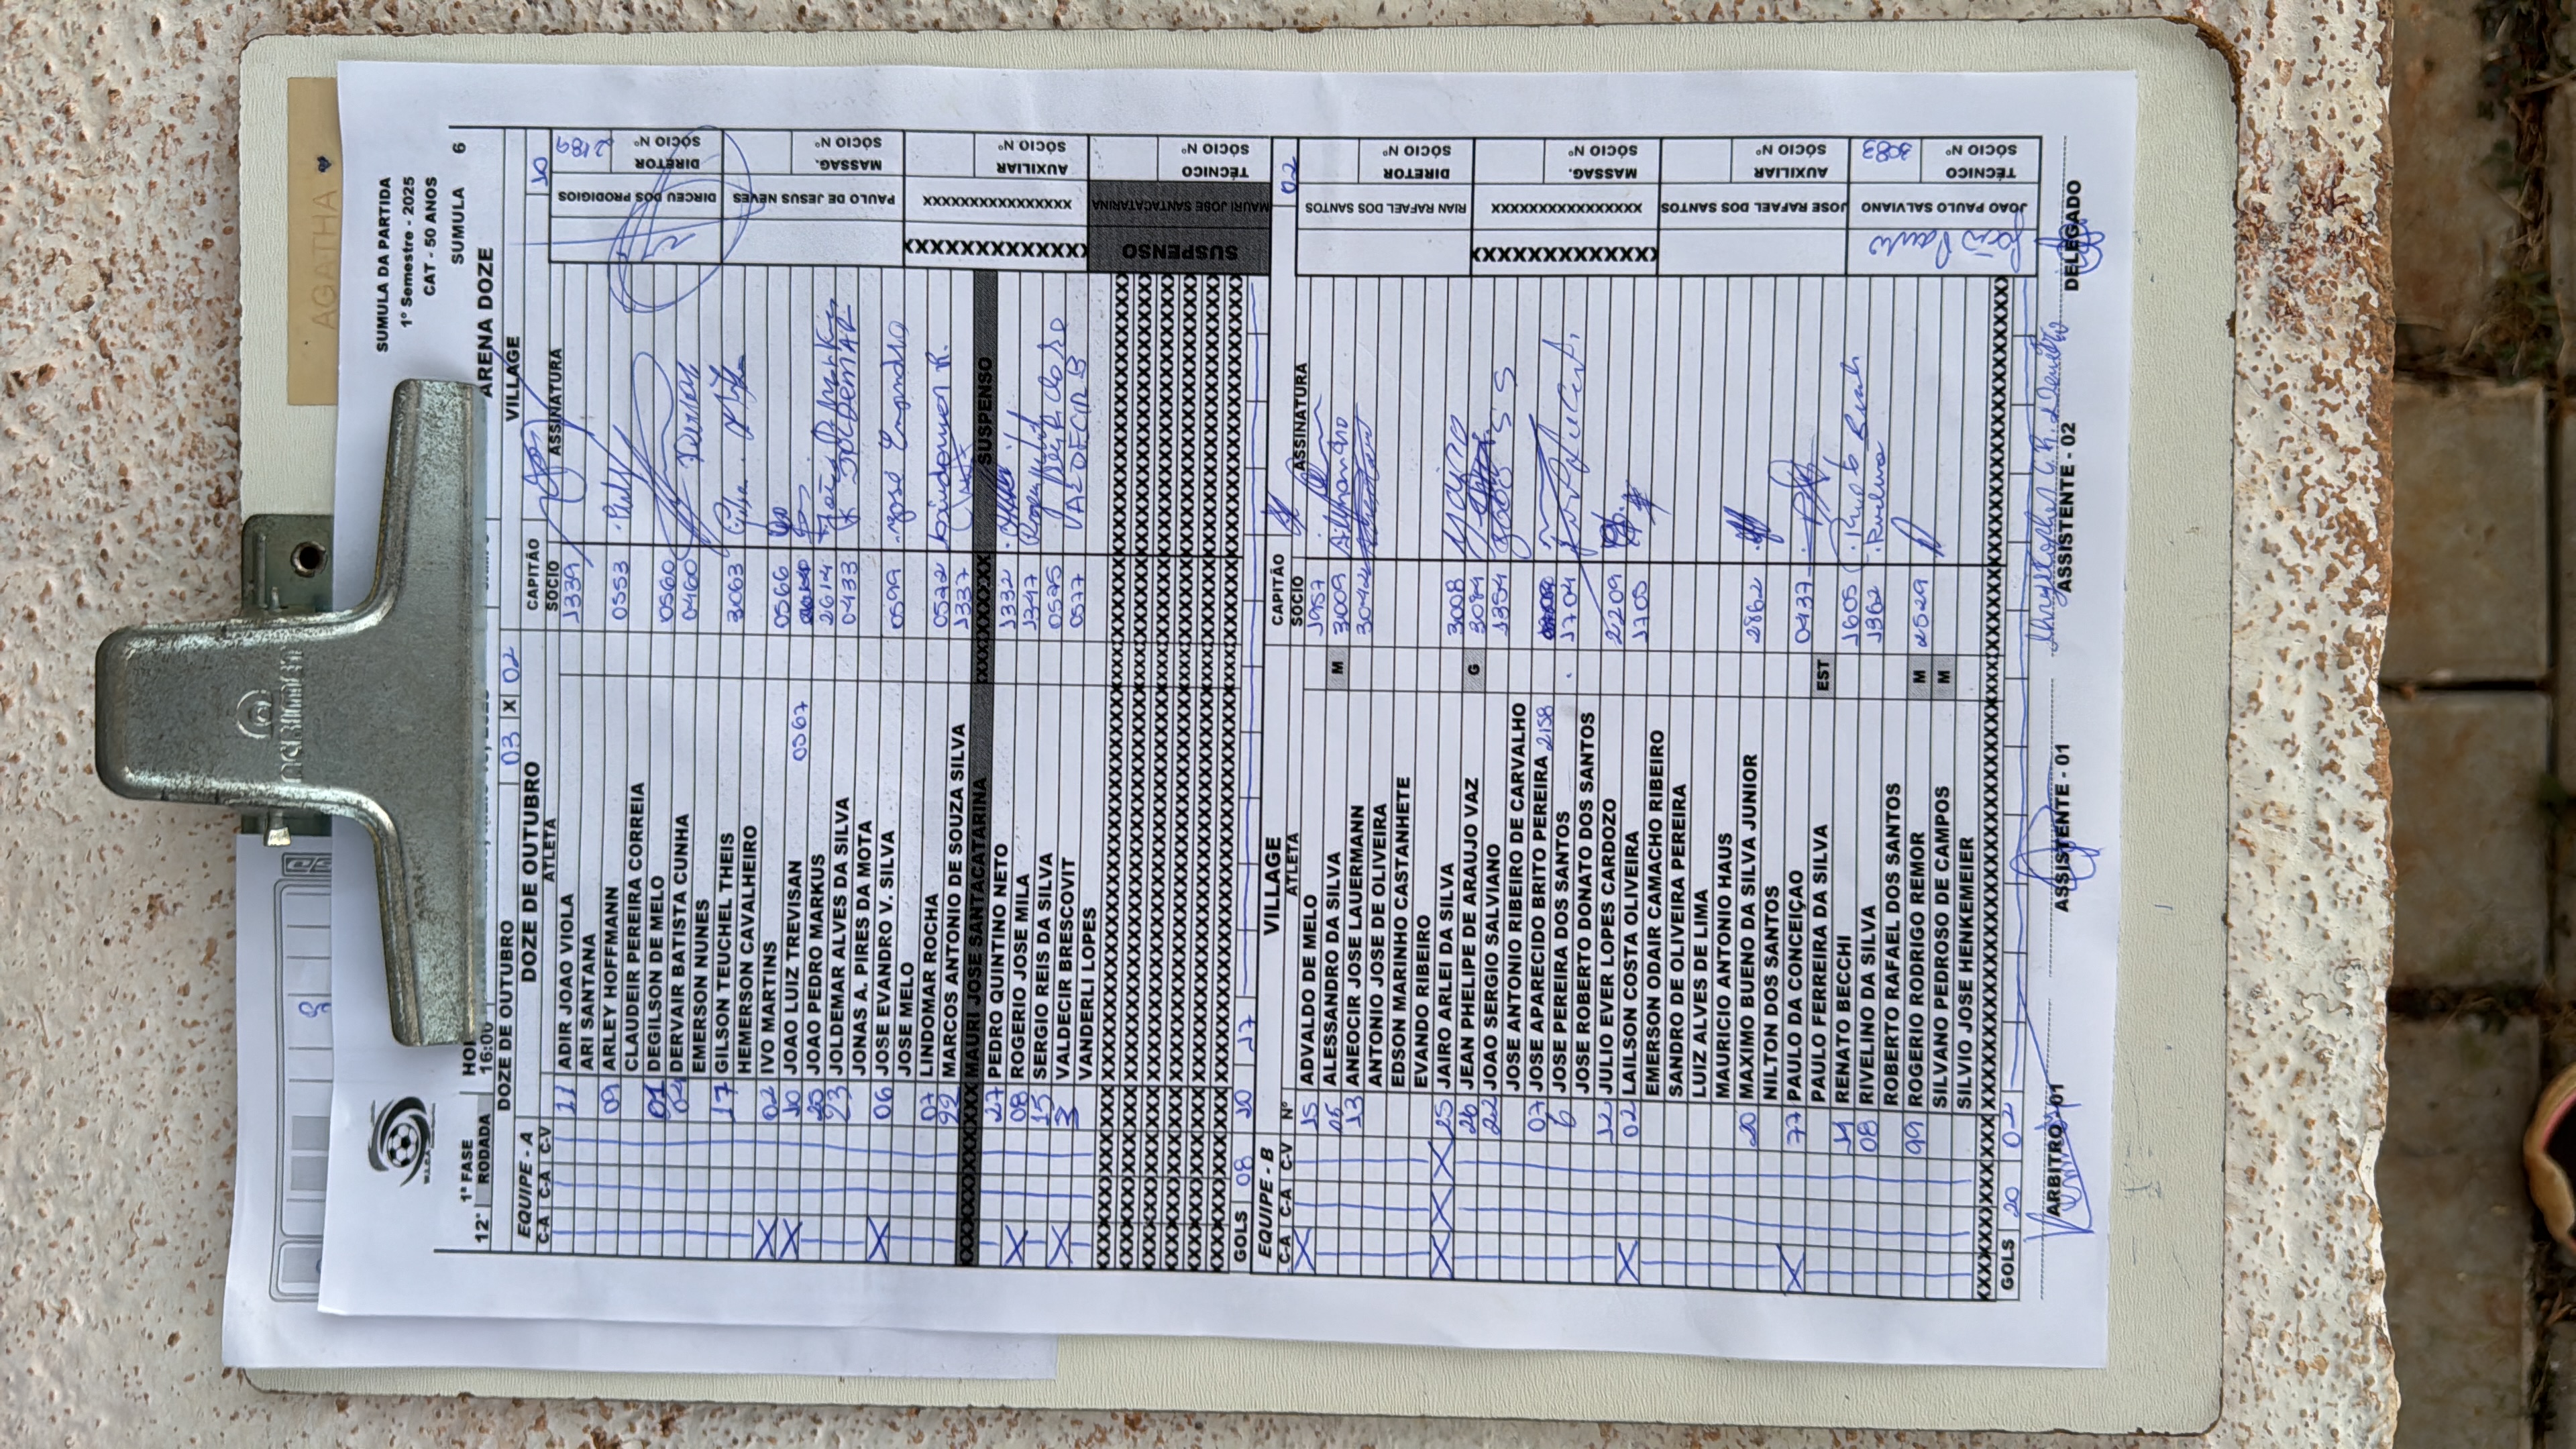 AGATHA
SUMULA DA PARTIDA
1º Semestre - 2025
CAT - 50 ANOS
SUMULA 6
1ª FASE
12ª RODADA 16:00 ARENA DOZE
DOZE DE OUTUBRO 03 X 02 VILLAGE
EQUIPE - A DOZE DE OUTUBRO CAPITÃO 10
C-A C-A C-V ATLETA SOCIO ASSINATURA
11 ADIR JOAO VIOLA 1339
ARI SANTANA
09 ARLEY HOFFMANN 0553
CLAUDEIR PEREIRA CORREIA
01 DEGILSON DE MELO 0560
04 DERVAIR BATISTA CUNHA 0460
EMERSON NUNES
17 GILSON TEUCHEL THEIS 3063
HEMERSON CAVALHEIRO
X 02 IVO MARTINS 0566
X 10 JOAO LUIZ TREVISAN 0567
20 JOAO PEDRO MARKUS 2614
23 JOLDEMAR ALVES DA SILVA 0433 JOLDEMAR
JONAS A. PIRES DA MOTA
X 06 JOSE EVANDRO V. SILVA 0599
JOSE MELO
07 LINDOMAR ROCHA 0572
92 MARCOS ANTONIO DE SOUZA SILVA 1337
XXXXXXXX MAURI JOSE SANTACATARINA XXXXXXXX SUSPENSO
27 PEDRO QUINTINO NETO 1332
X 08 ROGERIO JOSE MILA 1347
15 SERGIO REIS DA SILVA 0575
X 13 VALDECIR BRESCOVIT 0577 VALDECIR B
VANDERLI LOPES
GOLS 08 10 17
DIRCEU DOS PRODIGIOS DIRETOR SÓCIO Nº 2189
PAULO DE JESUS NEVES MASSAG. SÓCIO Nº
XXXXXXXXXXXXX XXXXXXXXXXXXXXXXX AUXILIAR SÓCIO Nº
SUSPENSO MAURI JOSE SANTACATARINA TÉCNICO SÓCIO Nº
EQUIPE - B VILLAGE CAPITÃO 02
C-A C-A C-V Nº ATLETA SOCIO ASSINATURA
X 15 ADVALDO DE MELO 1957
05 ALESSANDRO DA SILVA M 3009
13 ANEOCIR JOSE LAUERMANN 3042
ANTONIO JOSE DE OLIVEIRA
EDSON MARINHO CASTANHETE
EVANDO RIBEIRO
X X X 25 JAIRO ARLEI DA SILVA 3008
26 JEAN PHELIPE DE ARAUJO VAZ G 3084
22 JOAO SERGIO SALVIANO 1354
JOSE ANTONIO RIBEIRO DE CARVALHO
07 JOSE APARECIDO BRITO PEREIRA 2158
6 JOSE PEREIRA DOS SANTOS 1704
JOSE ROBERTO DONATO DOS SANTOS
12 JULIO EVER LOPES CARDOZO 2209
X 02 LAILSON COSTA OLIVEIRA 1705
EMERSON ODAIR CAMACHO RIBEIRO
SANDRO DE OLIVEIRA PEREIRA
LUIZ ALVES DE LIMA
MAURICIO ANTONIO HAUS
20 MAXIMO BUENO DA SILVA JUNIOR 2862
NILTON DOS SANTOS
X 77 PAULO DA CONCEIÇAO 0437
PAULO FERREIRA DA SILVA EST
11 RENATO BECCHI 1605
08 RIVELINO DA SILVA 1362 Rivelino
ROBERTO RAFAEL DOS SANTOS
99 ROGERIO RODRIGO REMOR M 2529
SILVANO PEDROSO DE CAMPOS M
SILVIO JOSE HENKEMEIER
GOLS 20 02
RIAN RAFAEL DOS SANTOS DIRETOR SÓCIO Nº
XXXXXXXXXXXXX XXXXXXXXXXXXXXXXX MASSAG. SÓCIO Nº
JOSE RAFAEL DOS SANTOS AUXILIAR SÓCIO Nº
João Paulo JOAO PAULO SALVIANO TÉCNICO SÓCIO Nº 3083
ARBITRO 01 ASSISTENTE - 01 ASSISTENTE - 02 DELEGADO